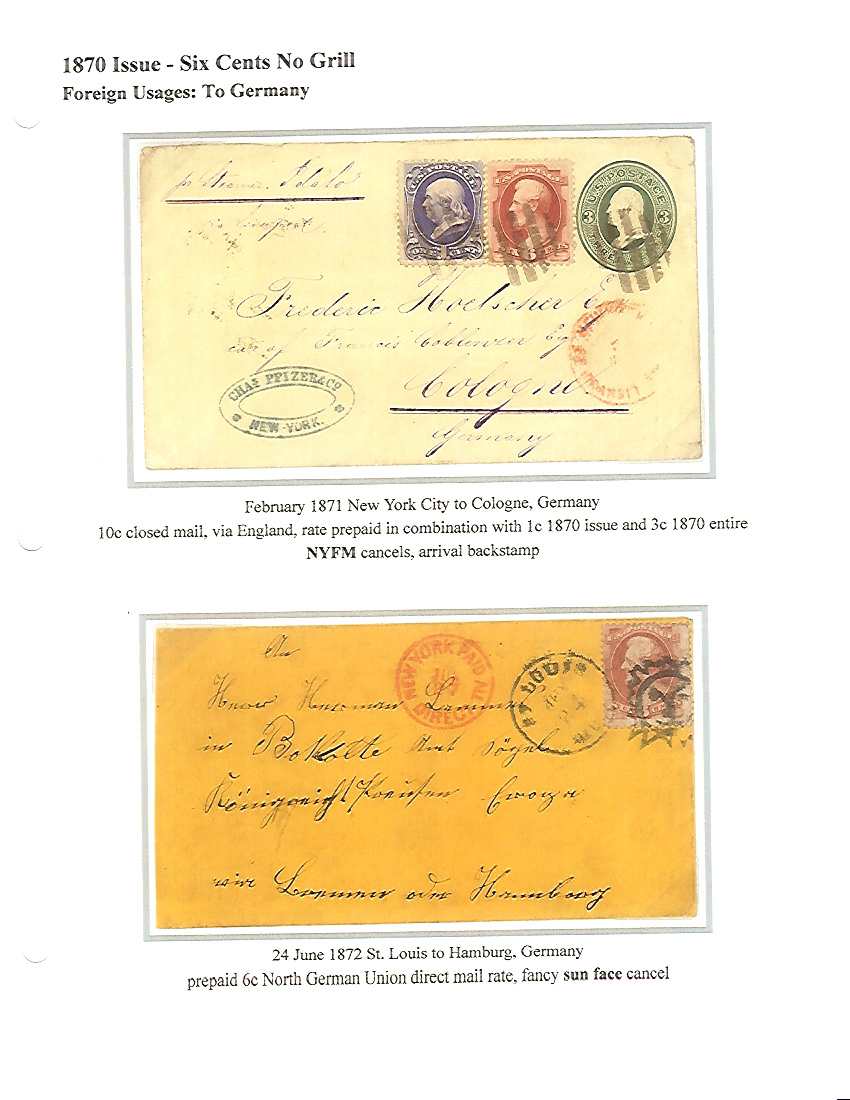 1870 Issue - Six Cents No Grill
Foreign Usages: To Germany
pr Steamer Idaho
U.S. POSTAGE
ONE CENT
U.S. POSTAGE
SIX CENTS
U.S. POSTAGE
3 3
Frederic Hoelscher E
care of Francis Coblenzer Esq
Cologne
Germany
TRANSIT
CHAS PFIZER & CO
NEW-YORK.
February 1871 New York City to Cologne, Germany
10c closed mail, via England, rate prepaid in combination with 1c 1870 issue and 3c 1870 entire
NYFM cancels, arrival backstamp
An
NEW YORK PAID ALL
DIRECT
ST LOUIS
24
MO
Herrn Herman
in Bokelte Amt Sögel
Königreich Preußen Europa
Bremen oder Hamburg
24 June 1872 St. Louis to Hamburg, Germany
prepaid 6c North German Union direct mail rate, fancy sun face cancel